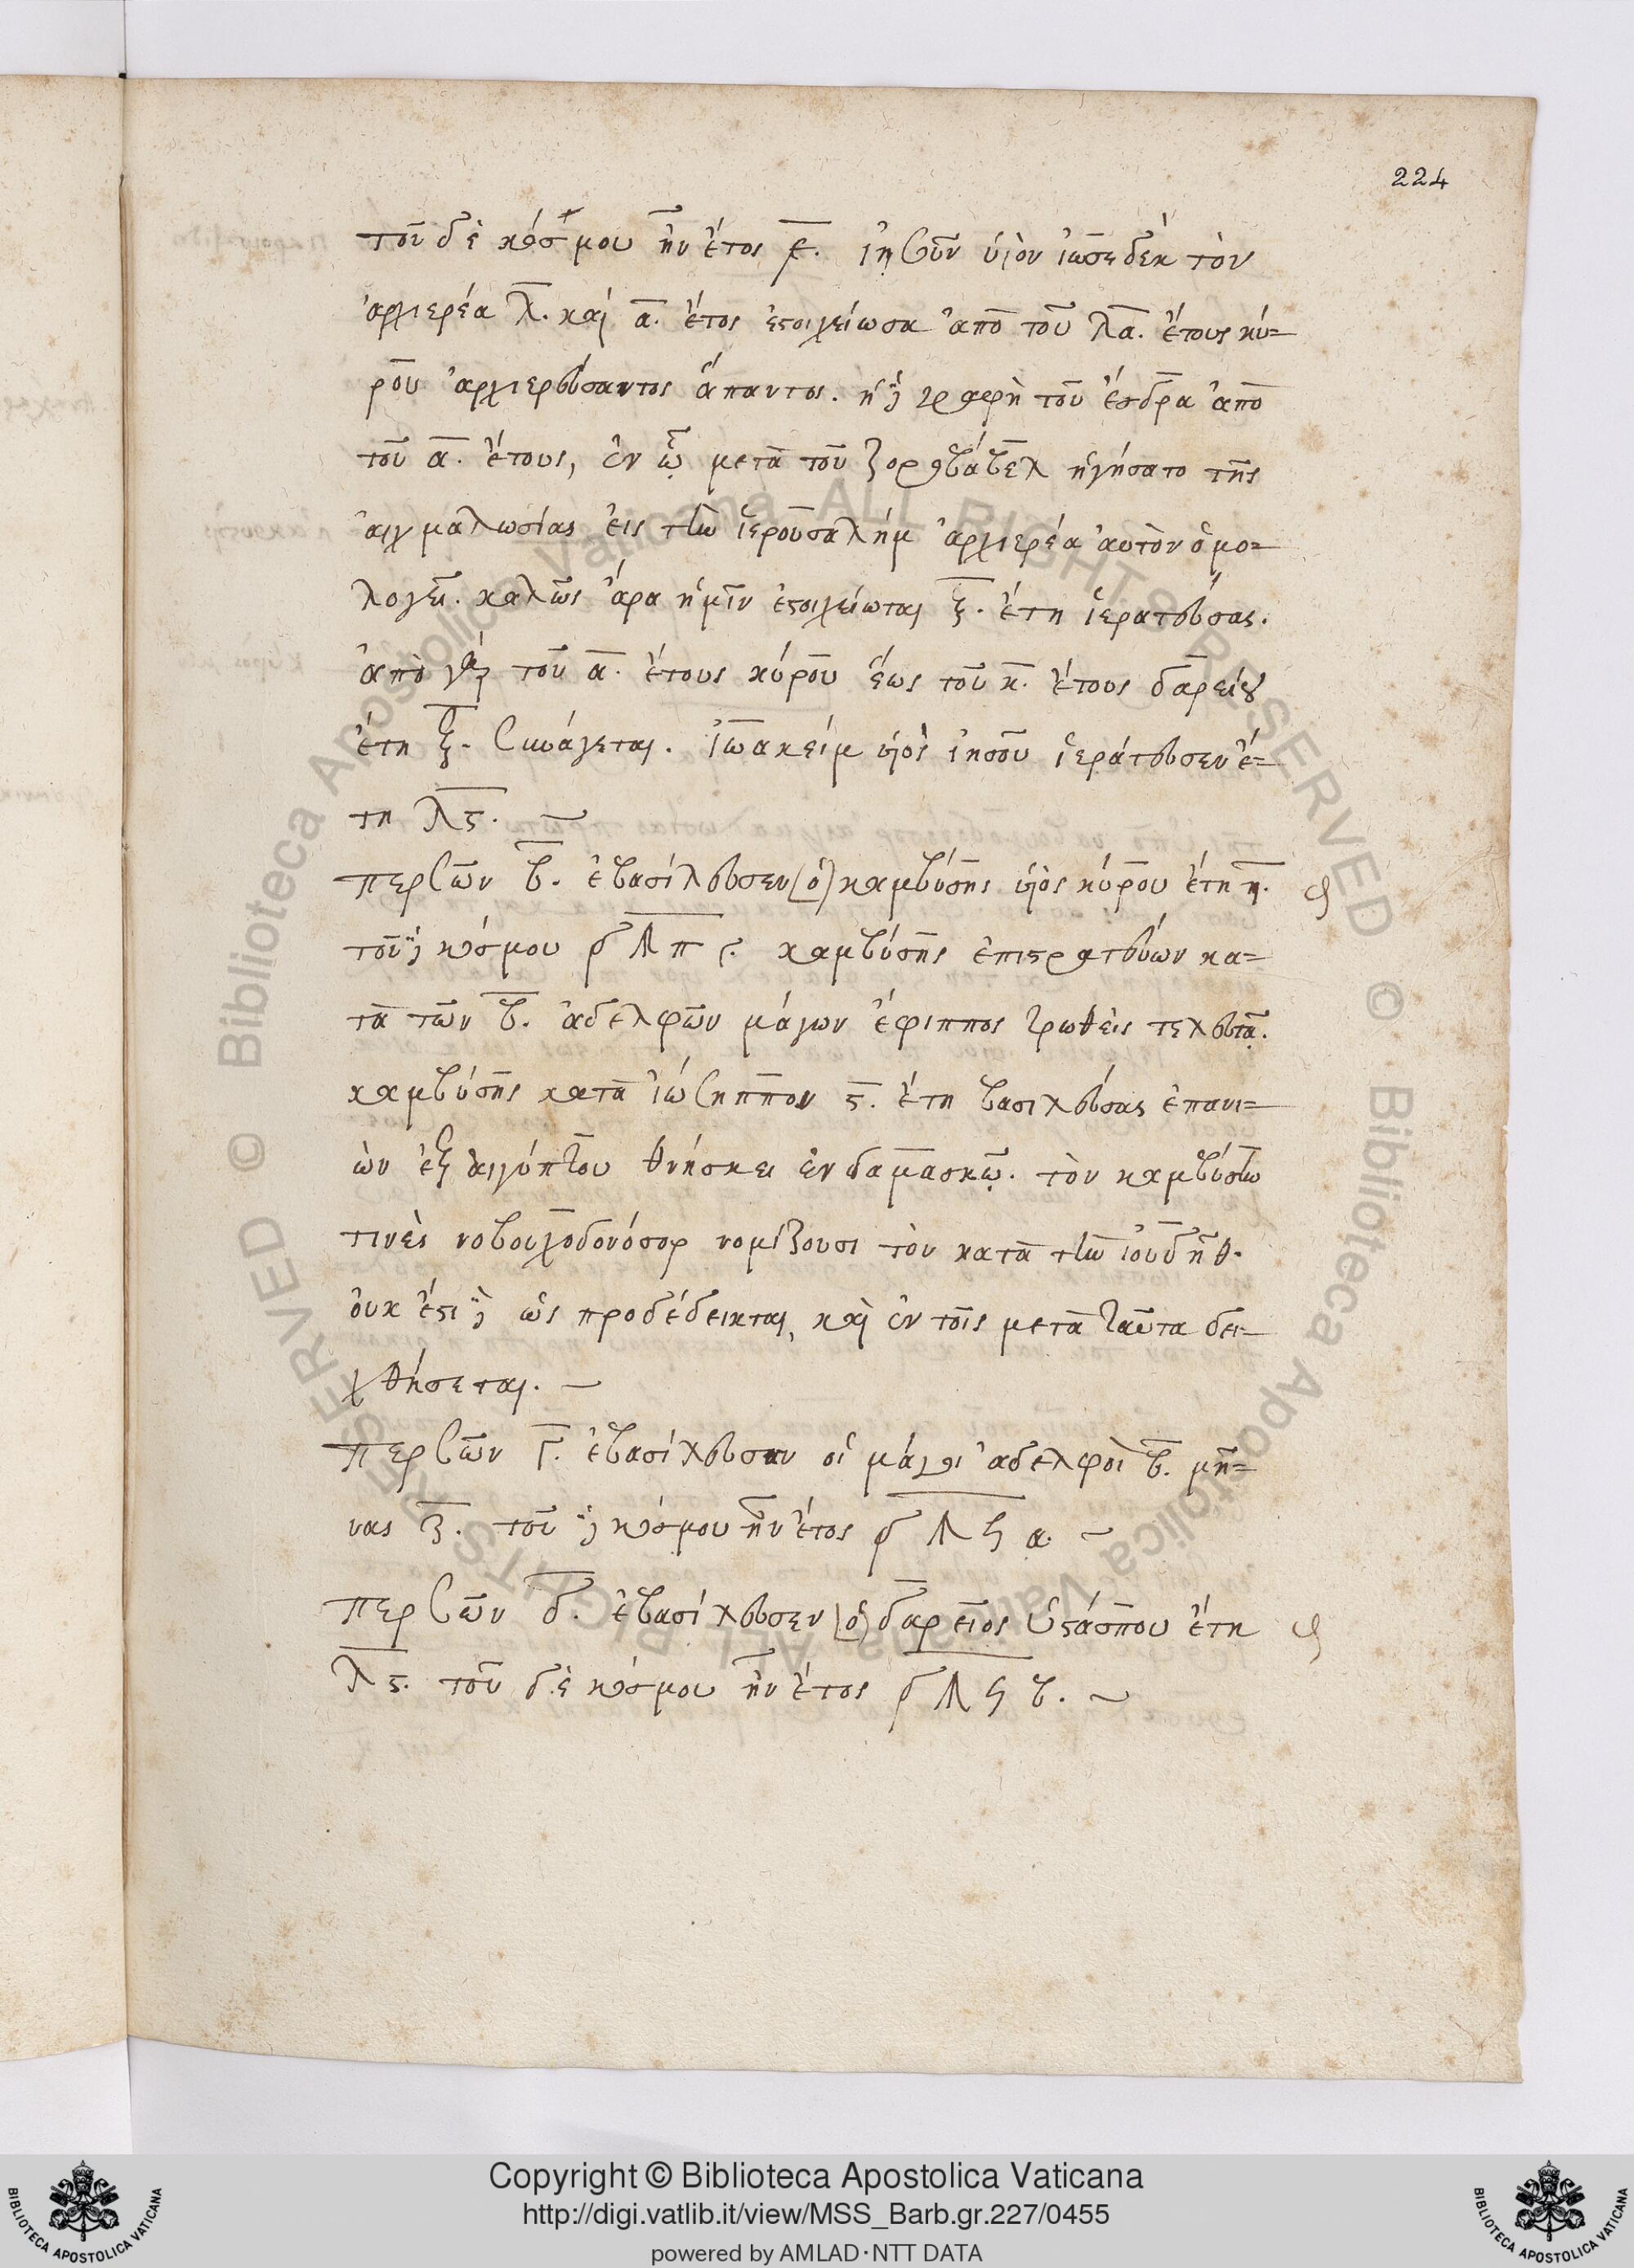 224
τοῦ δὲ κόσμου ἦν ἔτος ͵ε. ἰησοῦν υἱὸν ἰωσεδὲκ τὸν
ἀρχιερέα λ. καὶ α. ἔτος ἐστοιχείωσα ἀπὸ τοῦ λα. ἔτους κύ=
ρου ἀρχιερεύσαντος ἅπαντος. ἡ δὲ γραφὴ τοῦ ἔσδρα ἀπὸ
τοῦ α. ἔτους, ἐν ᾧ μετὰ τοῦ ζοροβάβελ ἡγήσατο τῆς
αἰχμαλωσίας εἰς τὴν ἱερουσαλήμ ἀρχιερέα αὐτὸν ὁμο=
λογεῖ. καλῶς ἄρα ἡμῖν ἐστοιχείωται ξ. ἔτη ἱερατεύσας.
ἀπὸ γὰρ τοῦ α. ἔτους κύρου ἕως τοῦ κ. ἔτους δαρείου
ἔτη ξ. συνάγεται. ἰωακείμ υἱὸς ἰησοῦ ἱεράτευσεν ἔ=
τη λϛ. ~
περσῶν β. ἐβασίλευσεν (ὁ) καμβύσης υἱὸς κύρου ἔτη η.
τοῦ δὲ κόσμου ͵δ Λ π γ. καμβύσης ἐπιστρατεύων κα=
τὰ τῶν β. ἀδελφῶν μάγων ἔφιππος τρωθεὶς τελευτᾷ.
καμβύσης κατὰ ἰώσηππον ϛ. ἔτη βασιλεύσας ἐπανι=
ὼν ἐξ αἰγύπτου θνήσκει ἐν δαμασκῷ. τὸν καμβύσην
τινὲς νοβουχοδονόσορ νομίζουσι τὸν κατὰ τὴν ἰουδήθ.
οὐκ ἔστι δὲ ὡς προδέδεικται, καὶ ἐν τοῖς μετὰ ταῦτα δει=
χθήσεται. ~
περσῶν γ. ἐβασίλευσαν οἱ μάγοι ἀδελφοὶ β. μῆ=
νας ζ. τοῦ δὲ κόσμου ἦν ἔτος ͵δ Λ ϟ α. ~
περσῶν δ. ἐβασίλευσεν (ὁ) δαρεῖος ὑστάσπου ἔτη
λϛ. τοῦ δὲ κόσμου ἦν ἔτος ͵δ Λ ϟ β. ~
Copyright © Biblioteca Apostolica Vaticana
http://digi.vatlib.it/view/MSS_Barb.gr.227/0455
powered by AMLAD·NTT DATA
BIBLIOTECA APOSTOLICA VATICANA
BIBLIOTECA APOSTOLICA VATICANA
© Biblioteca Apostolica Vaticana ALL RIGHTS RESERVED
© Biblioteca Apostolica Vaticana ALL RIGHTS RESERVED